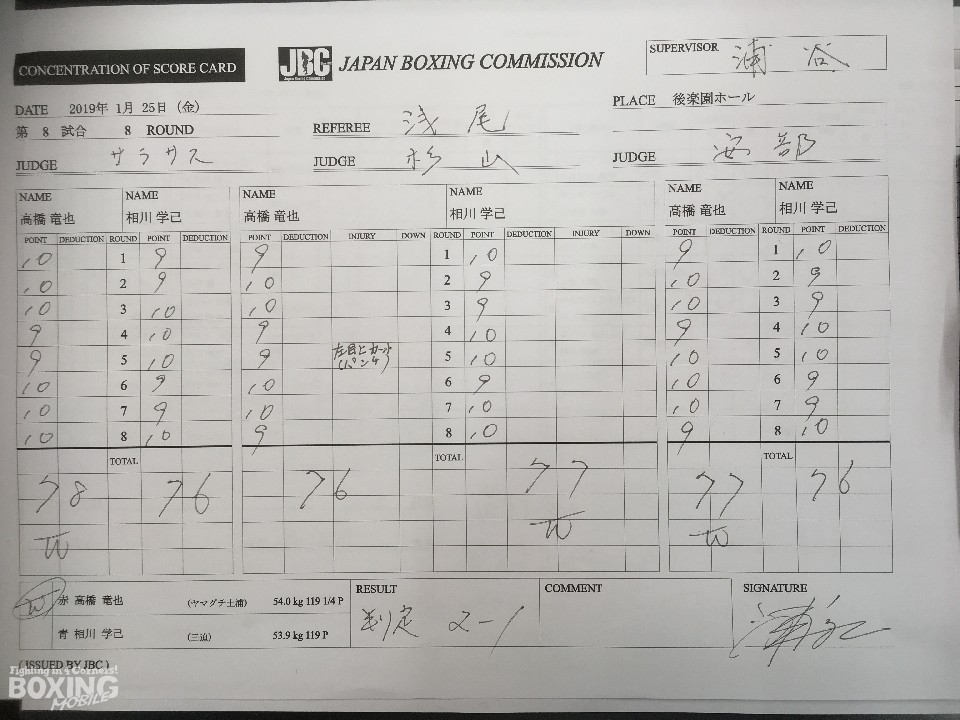 CONCENTRATION OF SCORE CARD
JBC
Japan Boxing Commission
JAPAN BOXING COMMISSION
SUPERVISOR 浦谷
DATE 2019年 1月 25日 (金)
PLACE 後楽園ホール
第 8 試合 8 ROUND
REFEREE 浅尾
JUDGE サラサス
JUDGE 杉山
JUDGE 安部
NAME NAME NAME NAME NAME NAME
高橋 竜也 相川 学己 高橋 竜也 相川 学己 高橋 竜也 相川 学己
POINT DEDUCTION ROUND POINT DEDUCTION POINT DEDUCTION INJURY DOWN ROUND POINT DEDUCTION INJURY DOWN POINT DEDUCTION ROUND POINT DEDUCTION
10 1 9 9 1 10 9 1 10
10 2 9 10 2 9 10 2 9
10 3 10 10 3 9 10 3 9
9 4 10 9 4 10 9 4 10
9 5 10 9 左目上カット (パンチ) 5 10 10 5 10
10 6 9 10 6 9 10 6 9
10 7 9 10 7 10 10 7 9
10 8 10 9 8 10 9 8 10
TOTAL TOTAL TOTAL
78 76 76 77 77 76
W W W
W 赤 高橋 竜也 (ヤマグチ土浦) 54.0 kg 119 1/4 P
青 相川 学己 (三迫) 53.9 kg 119 P
RESULT
判定 2-1
COMMENT
SIGNATURE
(ISSUED BY JBC)
Fighting in 4 Corners!
BOXING
MOBILE